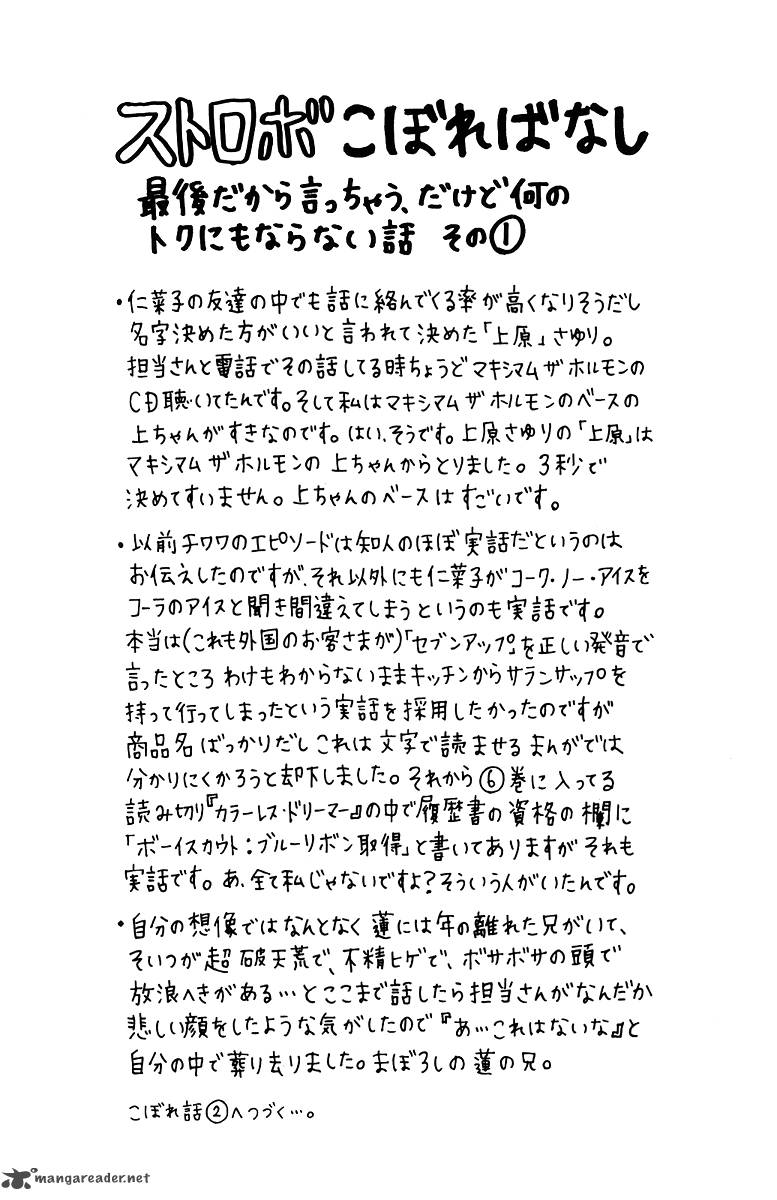 ストロボこぼればなし
最後だから言っちゃう、だけど何の
トクにもならない話 その①
・仁菜子の友達の中でも話に絡んでくる率が高くなりそうだし
名字決めた方がいいと言われて決めた「上原」さゆり。
担当さんと電話でその話してる時ちょうどマキシマム ザ ホルモンの
CD聴いてたんです。そして私はマキシマム ザ ホルモンのベースの
上ちゃんがすきなのです。はい、そうです。上原さゆりの「上原」は
マキシマム ザ ホルモンの 上ちゃんからとりました。3秒で
決めてすいません。上ちゃんのベースは すごいです。
・以前チワワのエピソードは知人のほぼ実話だというのは
お伝えしたのですが、それ以外にも仁菜子がコーク・ノー・アイスを
コーラのアイスと聞き間違えてしまうというのも実話です。
本当は(これも外国のお客さまが)「セブンアップ」を正しい発音で
言ったところ わけもわからないままキッチンからサランラップを
持って行ってしまったという実話を採用したかったのですが
商品名ばっかりだし これは文字で読ませるまんがでは
分かりにくかろうと却下しました。それから⑥巻に入ってる
読み切り『カラーレス・ドリーマー』の中で履歴書の資格の欄に
「ボーイスカウト:ブルーリボン取得」と書いてありますが それも
実話です。あ、全て私じゃないですよ?そういう人がいたんです。
・自分の想像ではなんとなく蓮には年の離れた兄がいて、
そいつが超破天荒で、不精ヒゲで、ボサボサの頭で
放浪へきがある…とここまで話したら担当さんがなんだか
悲しい顔をしたような気がしたので『あ…これはないな』と
自分の中で葬り去りました。まぼろしの蓮の兄。
こぼれ話②へつづく…。
mangareader.net